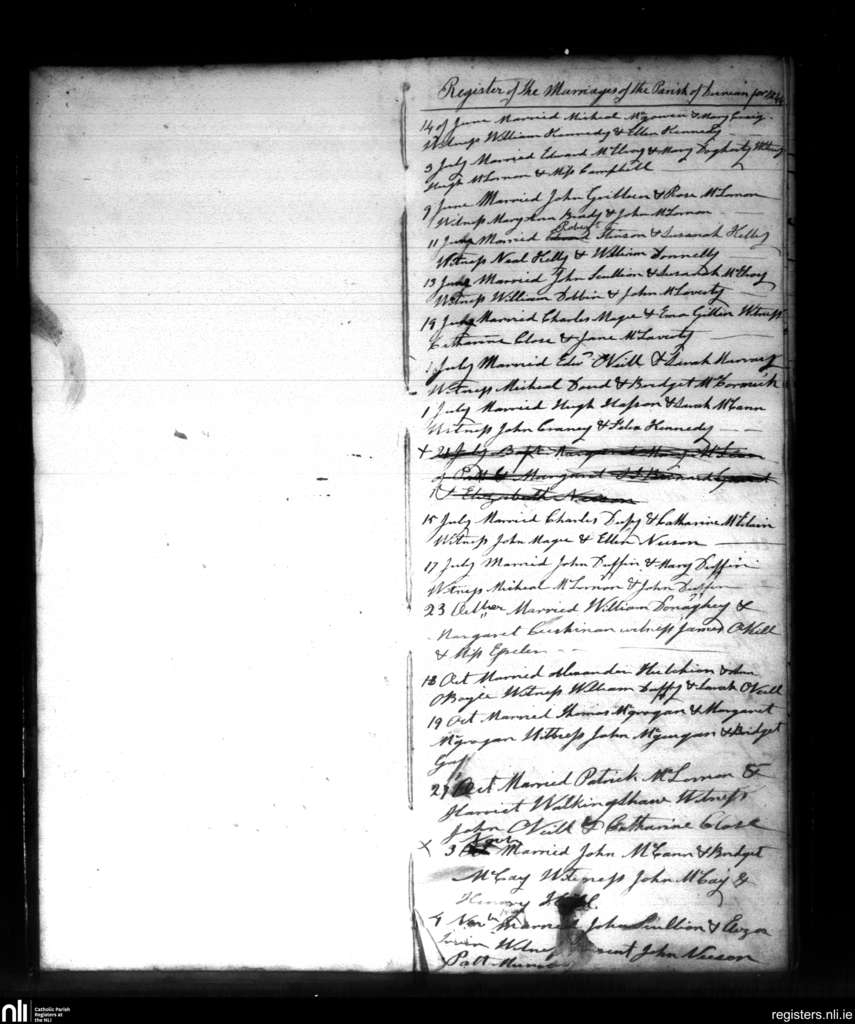 Register of the Marriages of the Parish of for
14 of June Married Micheal McGowan & Mary Craig
Witness William Kennedy & Ellen Kennedy
3 July Married Edward McElroy & Mary Dogherty Witness
Hugh McLornan & Miss Campbell
9 June Married John Gribbin & Rose McLornon
Witness Mary Ann Brady & John McLornon
11 July Married Robert Stinson & Susanah Kelly
Witness Neal Kelly & William Donnelly
13 Married John Scullion & Susanah
Witness William Dobbin & John McLaverty
19 July Married Charles Magee & Witness
Catharine Close & Jane McLaverty
July Married Edwd ONeill & Sarah Murray
Witness Micheal David & Bridget McCormick
1 July Married Hugh Hasson & Sarah McCann
Witness John Craney & Kennedy
+ 21 July Bapt Margaret Mary
of Patt & Margaret
& Elizabeth Neeson
15 July Married Charles Duffy & Catharine
Witness John Magee & Ellen Neeson
17 July Married John Duffin & Mary Duffin
Witness Micheal McLornon & John Duffin
23 Octber Married William Donaghey &
Margaret Cushinan witness James ONeill
& Miss
18 Oct Married Alexander Hutchion & Ann
OBoyle Witness William Duffy & Sarah ONeill
19 Oct Married Thomas McGrogan & Margaret
McGrogan Witness John McGurgan & Bridget
29 Oct Married Patrick McLornan &
Harriet Walkingshaw Witness
John ONeill & Catharine Close
X 3 Novr Married John McCann & Bridget
McCay Witeness John McCay &
Henery
4 Novr Married John Scullion & Eliza
John Neeson
Patt
nli
Catholic Parish
Registers at
the NLI
registers.nli.ie